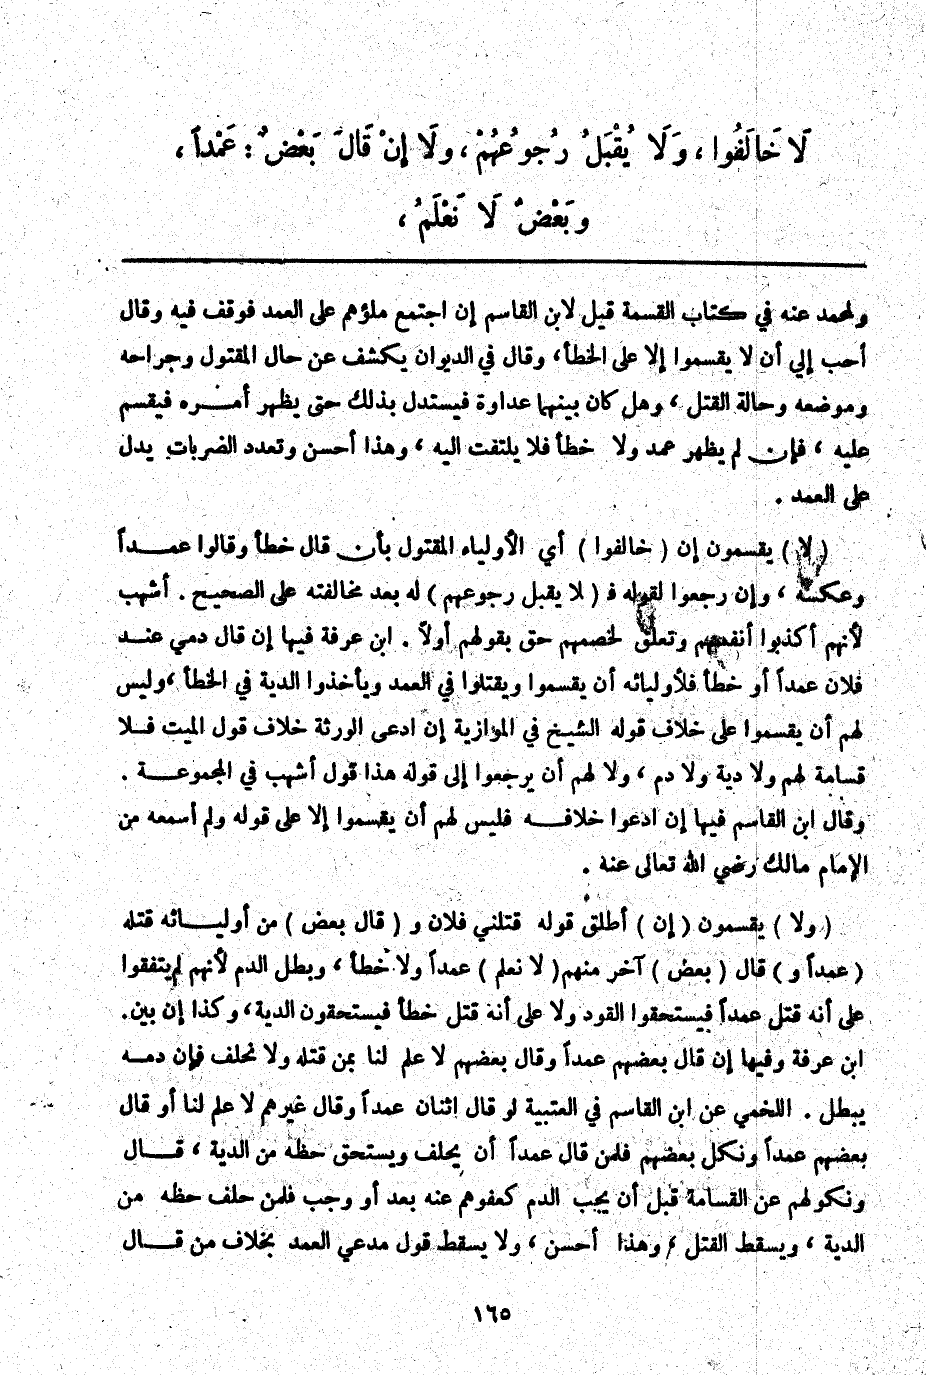 لَا خَالَفُوا ، وَلَا يُقْبَلُ رُجُوعُهُمْ ، وَلَا إِنْ قَالَ بَعْضٌ : عَمْداً ،
وَبَعْضٌ لَا نَعْلَمُ ،
ولمحمد عنه في كتاب القسمة قيل لابن القاسم إن اجتمع ملؤهم على العمد فوقف فيه وقال
أحب إلي أن لا يقسموا إلا على الخطأ ، وقال في الديوان يكشف عن حال المقتول وجراحه
وموضعه وحالة القتل ، وهل كان بينهما عداوة فيستدل بذلك حتى يظهر أمره فيقسم
عليه ، فإن لم يظهر عمد ولا خطأ فلا يلتفت اليه ، وهذا أحسن وتعدد الضربات يدل
على العمد .
( لا ) يقسمون إن ( خالفوا ) أي الأولياء المقتول بأن قال خطأ وقالوا عمداً
وعكسه ، وإن رجعوا لقوله فـ ( لا يقبل رجوعهم ) له بعد مخالفته على الصحيح . أشهب
لأنهم أكذبوا أنفسهم وتعلق لخصمهم حق بقولهم أولاً . ابن عرفة فيها إن قال دمي عند
فلان عمداً أو خطأ فلأوليائه أن يقسموا ويقتلوا في العمد ويأخذوا الدية في الخطأ ، وليس
لهم أن يقسموا على خلاف قوله الشيخ في الموازية إن ادعى الورثة خلاف قول الميت فلا
قسامة لهم ولا دية ولا دم ، ولا لهم أن يرجعوا إلى قوله هذا قول أشهب في المجموعة .
وقال ابن القاسم فيها إن ادعوا خلافه فليس لهم أن يقسموا إلا على قوله ولم أسمعه من
الإمام مالك رضي الله تعالى عنه .
( ولا ) يقسمون ( إن ) أطلق قوله قتلني فلان و ( قال بعض ) من أوليائه قتله
( عمداً و ) قال ( بعض ) آخر منهم ( لا نعلم ) عمداً ولا خطأ ، وبطل الدم لأنهم لم يتفقوا
على أنه قتل عمداً فيستحقوا القود ولا على أنه قتل خطأ فيستحقون الدية ، وكذا إن بين .
ابن عرفة وفيها إن قال بعضهم عمداً وقال بعضهم لا علم لنا بمن قتله ولا نحلف فإن دمه
يبطل . اللخمي عن ابن القاسم في العتبية لو قال اثنان عمداً وقال غيرهم لا علم لنا أو قال
بعضهم عمداً ونكل بعضهم فلمن قال عمداً أن يحلف ويستحق حظه من الدية ، قال
ونكولهم عن القسامة قبل أن يجب الدم كعفوهم عنه بعد أو وجب فلمن حلف حظه من
الدية ، ويسقط القتل ، وهذا أحسن ، ولا يسقط قول مدعي العمد بخلاف من قال
١٦٥